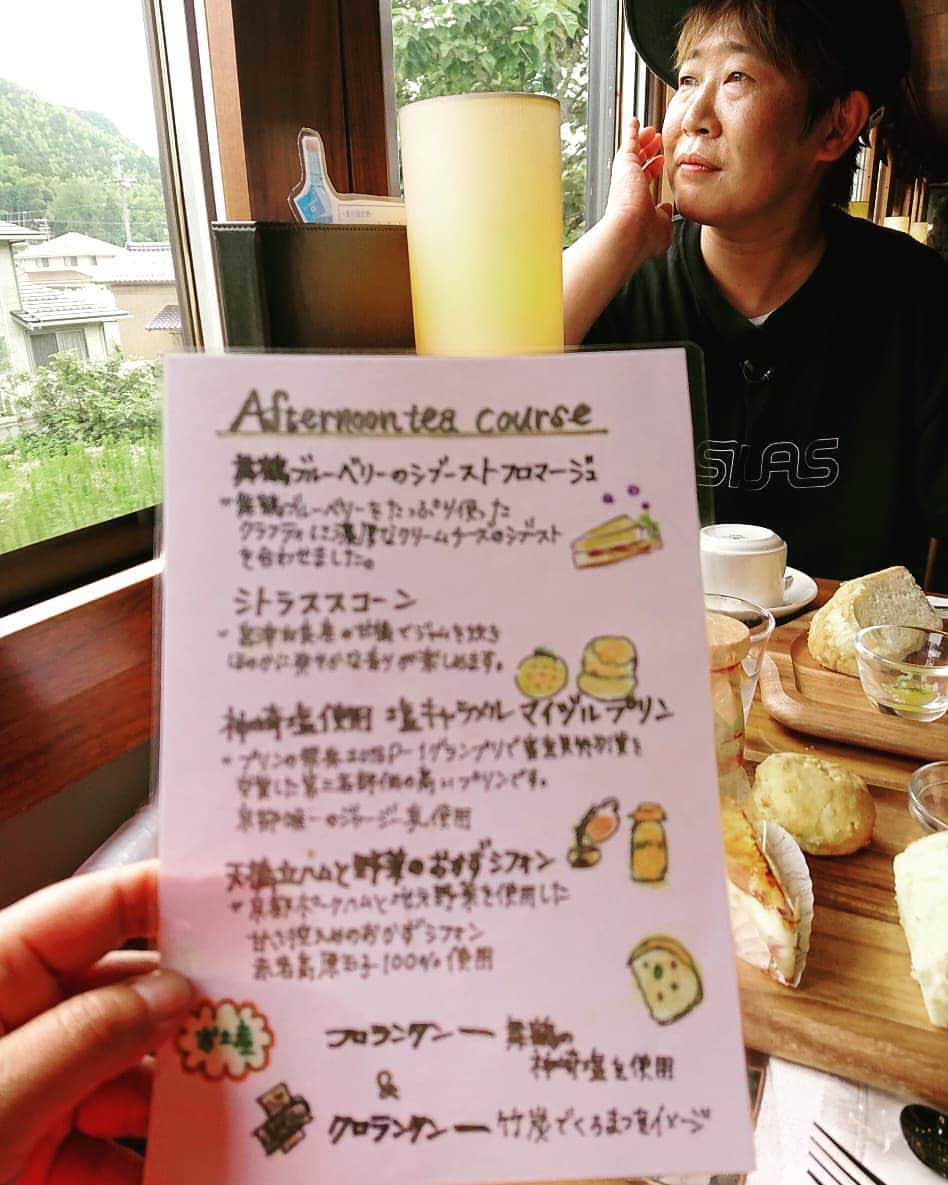 Afternoon tea course
舞鶴ブルーベリーのシブーストフロマージュ
舞鶴ブルーベリーをたっぷり使った
クラフティに濃厚なクリームチーズのシブースト
を合わせました。
シトラススコーン
でジャムを炊き
ほのかに爽やかな香りが楽しめます。
神崎塩使用 塩キャラメルマイヅルプリン
プリンの祭典2018P-1グランプリで審査員特別賞を
受賞した第二名評価の高いプリンです。
京都唯一のジャージー乳使用
天橋立ハムと野菜のおかずシフォン
京都ポークハムと地元野菜を使用した
甘さ控えめのおかずシフォン
高原玉子100%使用
フロランタンー 舞鶴の
神崎塩を使用
&
クロランタンー竹炭でくろまつをイメージ
SILAS